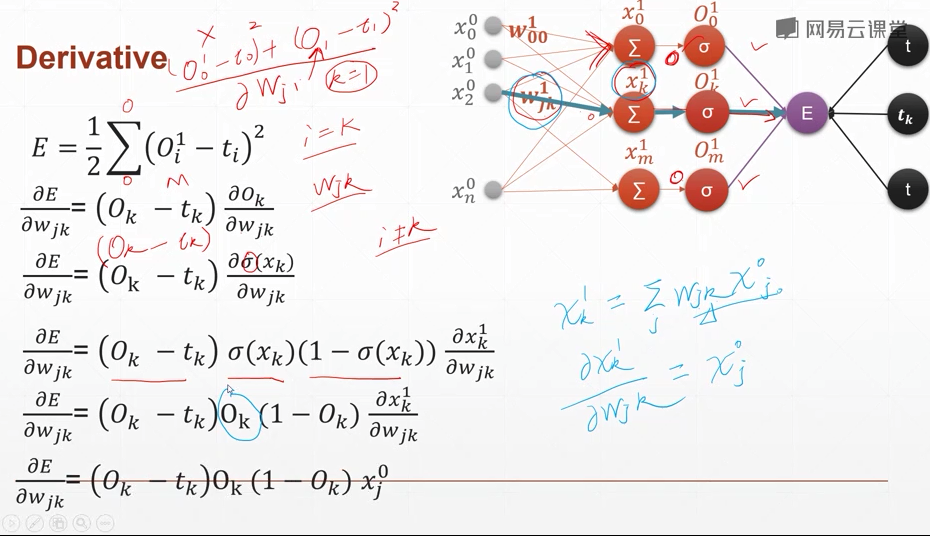 Derivative
(O₀¹ − t₀)² + (O₁ − t₁)²
∂Wji
k=1
E = 1/2 ∑ (Oᵢ¹ − tᵢ)²
0
0
m
i=k
∂E/∂wⱼₖ = (Oₖ − tₖ) ∂Oₖ/∂wⱼₖ
wjk
(Ok − tk)
i≠k
∂E/∂wⱼₖ = (Oₖ − tₖ) ∂σ(xₖ)/∂wⱼₖ
∂E/∂wⱼₖ = (Oₖ − tₖ) σ(xₖ)(1 − σ(xₖ)) ∂xₖ¹/∂wⱼₖ
∂E/∂wⱼₖ = (Oₖ − tₖ)Oₖ(1 − Oₖ) ∂xₖ¹/∂wⱼₖ
∂E/∂wⱼₖ = (Oₖ − tₖ)Oₖ(1 − Oₖ) xⱼ⁰
x₀⁰
x₁⁰
x₂⁰
xₙ⁰
w₀₀¹
wⱼₖ¹
x₀¹ O₀¹
∑ σ
xₖ¹ Oₖ¹
∑ σ
xₘ¹ Oₘ¹
∑ σ
E
t
tₖ
t
网易云课堂
xₖ¹ = ∑ⱼ wⱼₖ xⱼ⁰
∂xₖ¹/∂wⱼₖ = xⱼ⁰